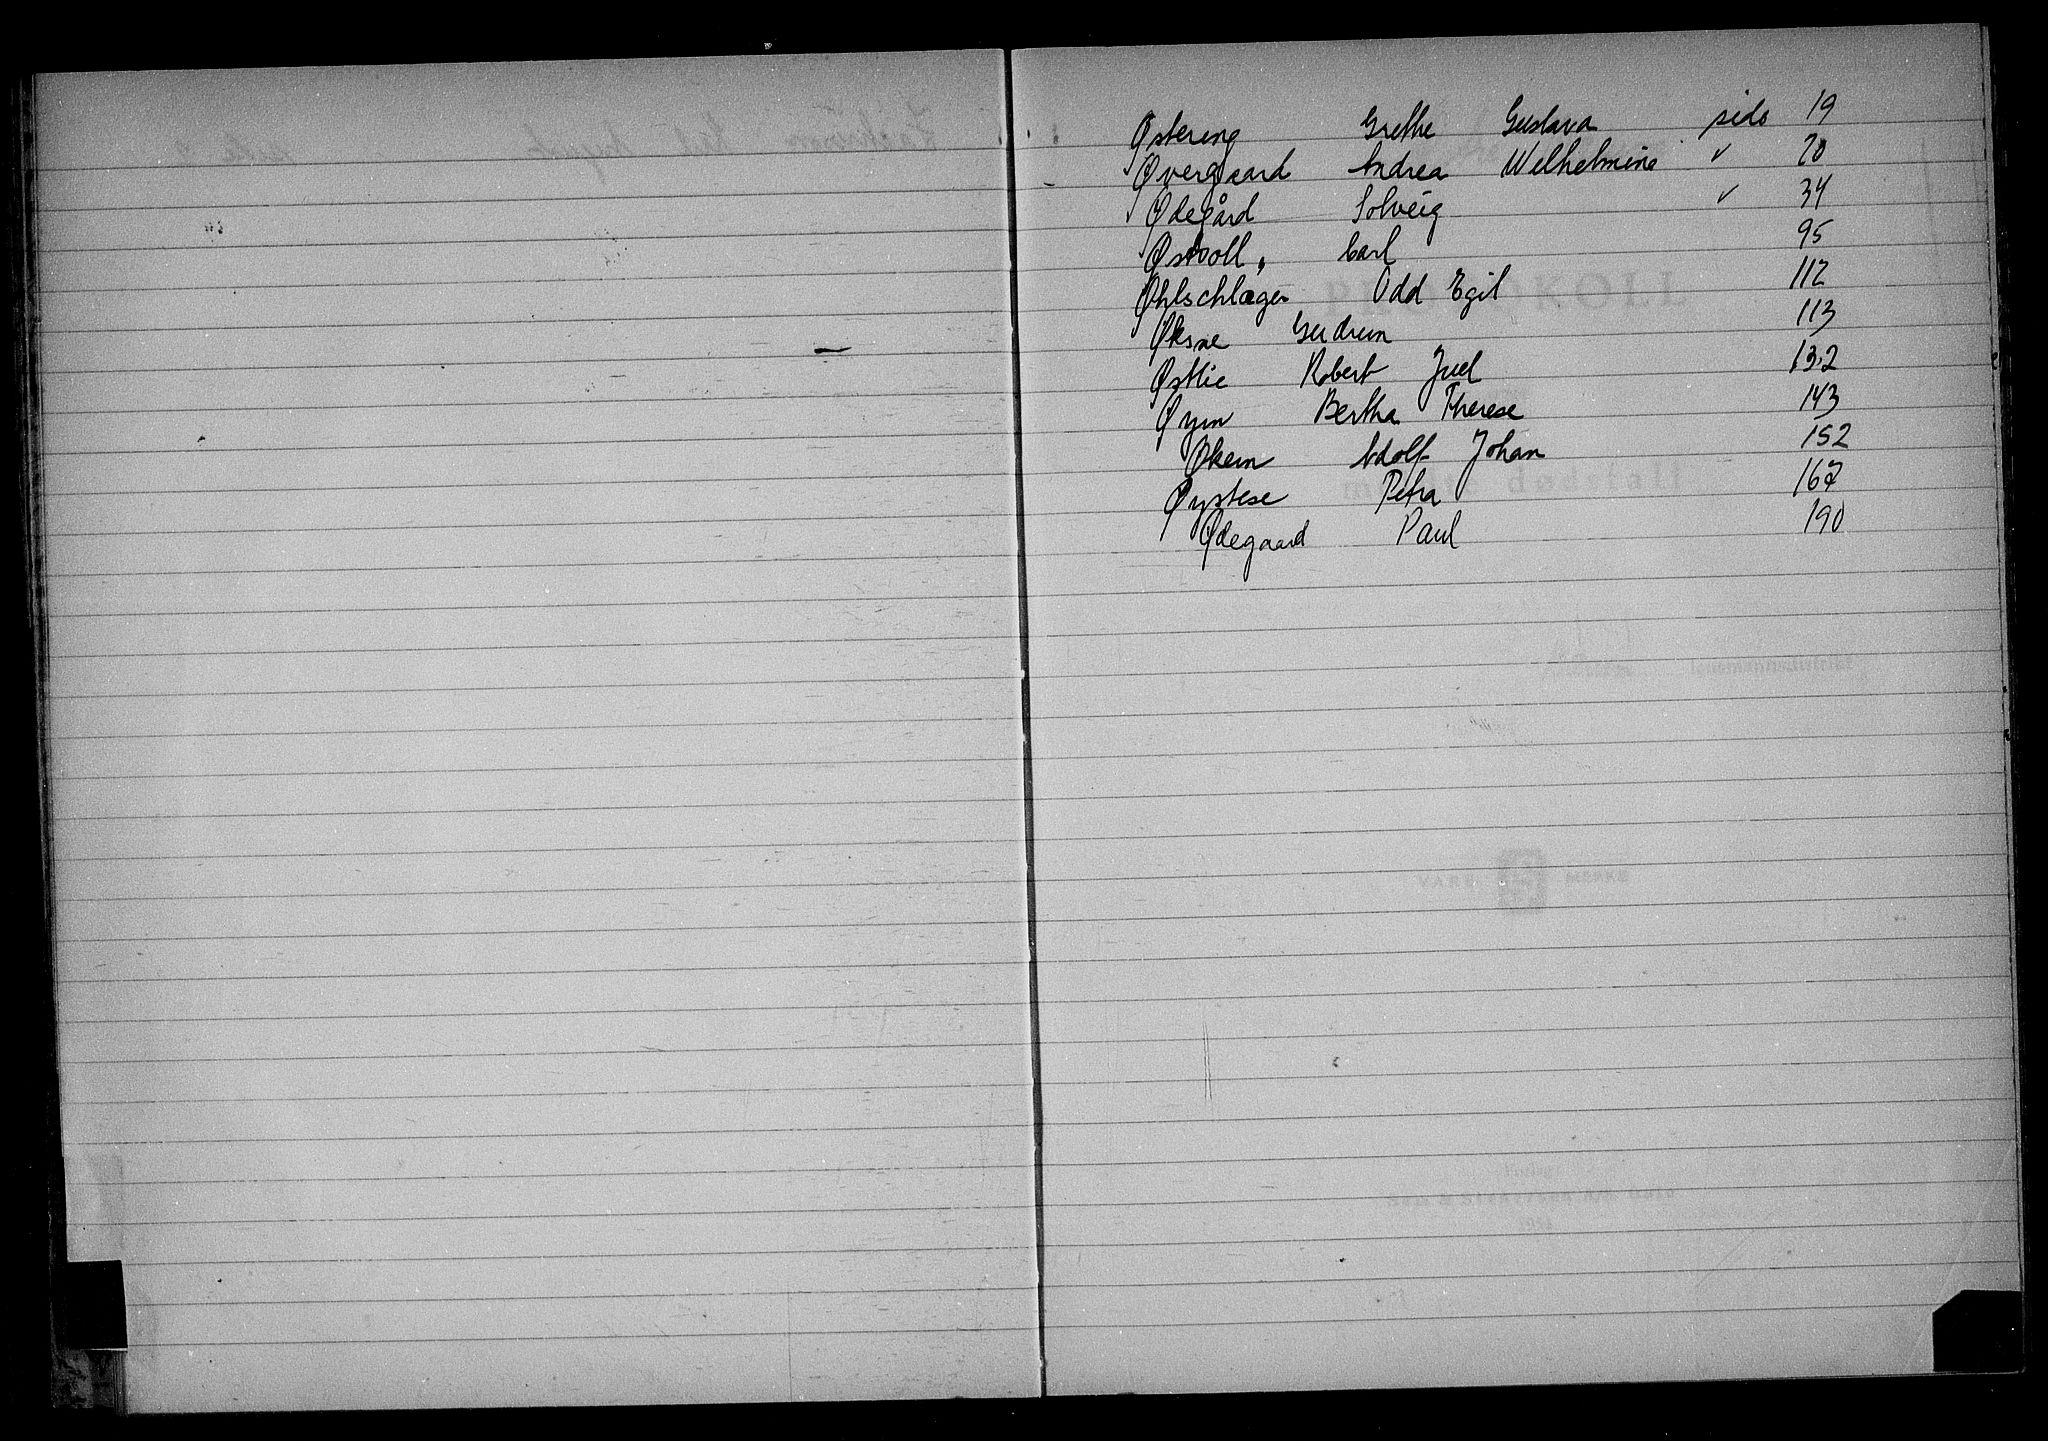 Østereng Grethe Gustava side 19
Øvergaard Andrea Wilhelmine ✓ 20
Ødegård Solveig ✓ 34
Østvoll, Carl 95
Øhlschlager Odd Egil 112
Øksne Gudrun 113
Østlie Robert Juel 132
Øyen Bertha Therese 143
Økern Adolf Johan 152
Øystese Petra 167
Ødegaard Paul 190
PROTOKOLL
dødsfall
lensmannsdistrikt
VARE MERKE